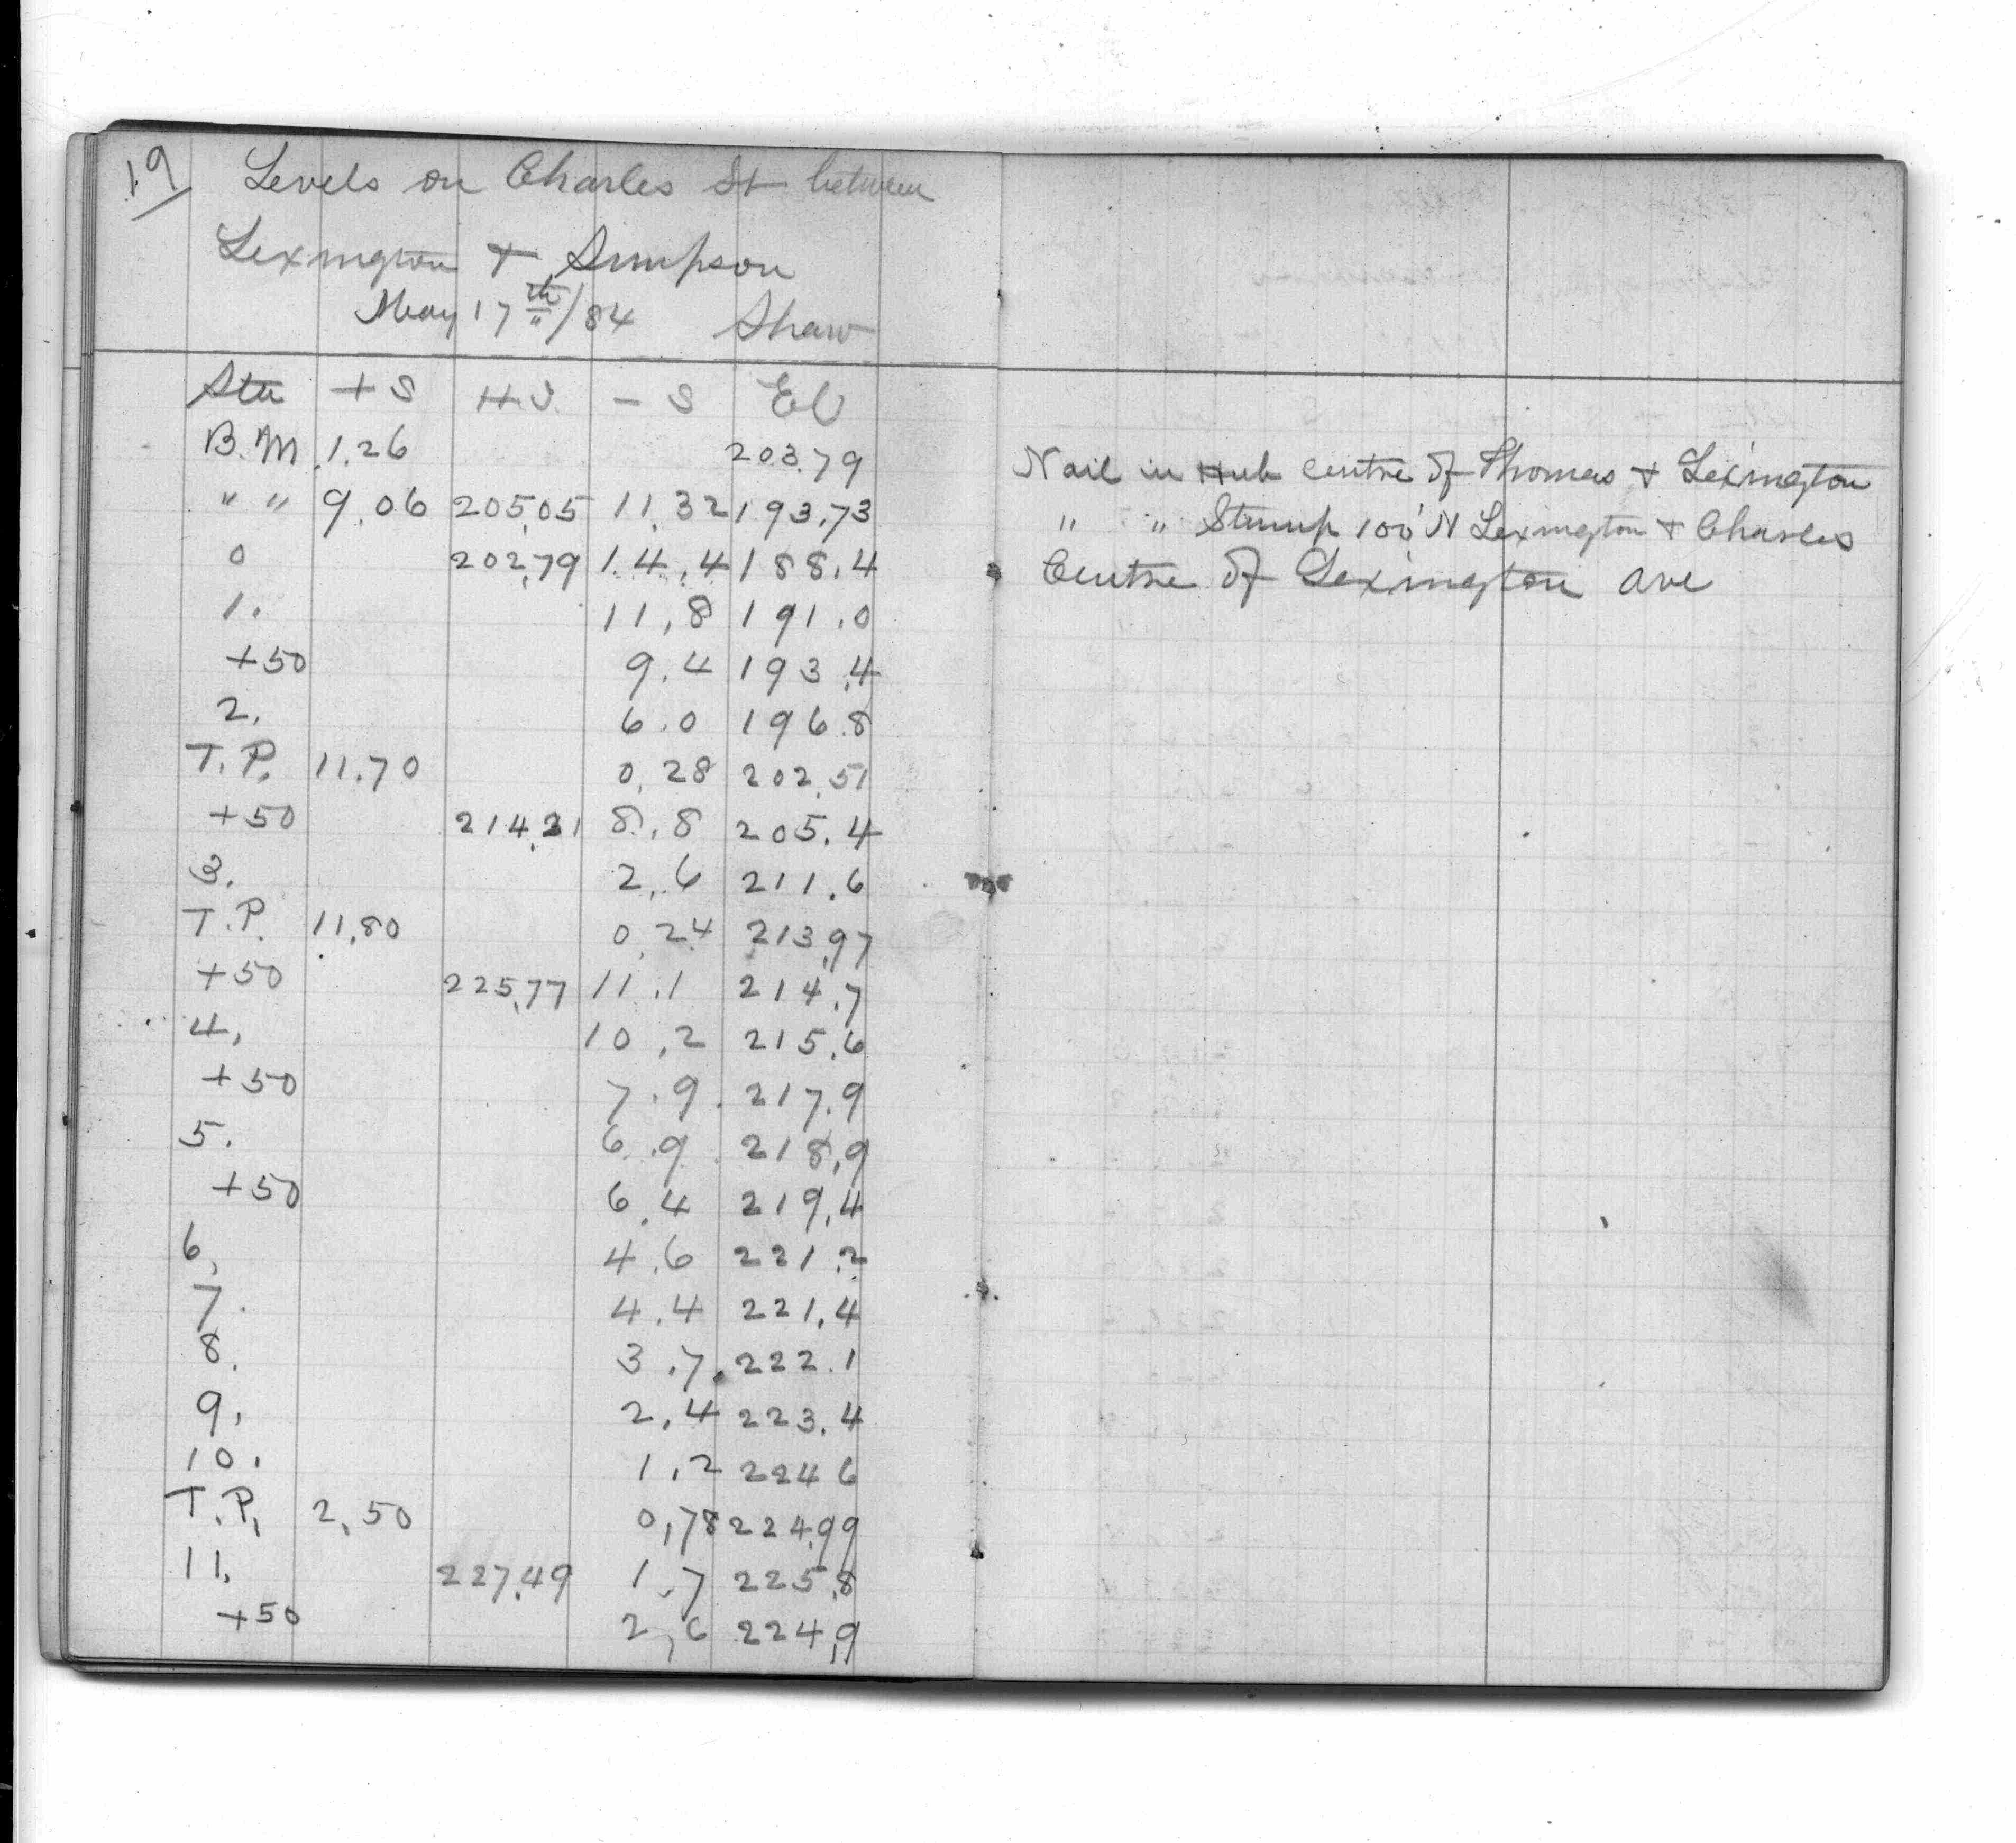 19
Levels on Charles St between
Lexington + Simpson
May 17th/84 Shaw
Sta + S H.I. - S El
B.M 1.26 203.79 Nail in Hub centre of Thomas + Lexington
" " 9.06 205.05 11.32 193.73 " " Stump 100' N Lexington + Charles
0 202.79 14.4 188.4 Centre of Lexington ave
1. 11.8 191.0
+50 9.4 193.4
2. 6.0 196.8
T.P. 11.70 0.28 202.51
+50 214.21 8.8 205.4
3. 2.6 211.6
T.P. 11.80 0.24 213.97
+50 225.77 11.1 214.7
4. 10.2 215.6
+50 7.9 217.9
5. 6.9 218.9
+50 6.4 219.4
6. 4.6 221.2
7. 4.4 221.4
8. 3.7 222.1
9. 2.4 223.4
10. 1.2 224 6
T.P. 2.50 0.78 224.99
11. 227.49 1.7 225.8
+50 2.6 224.9